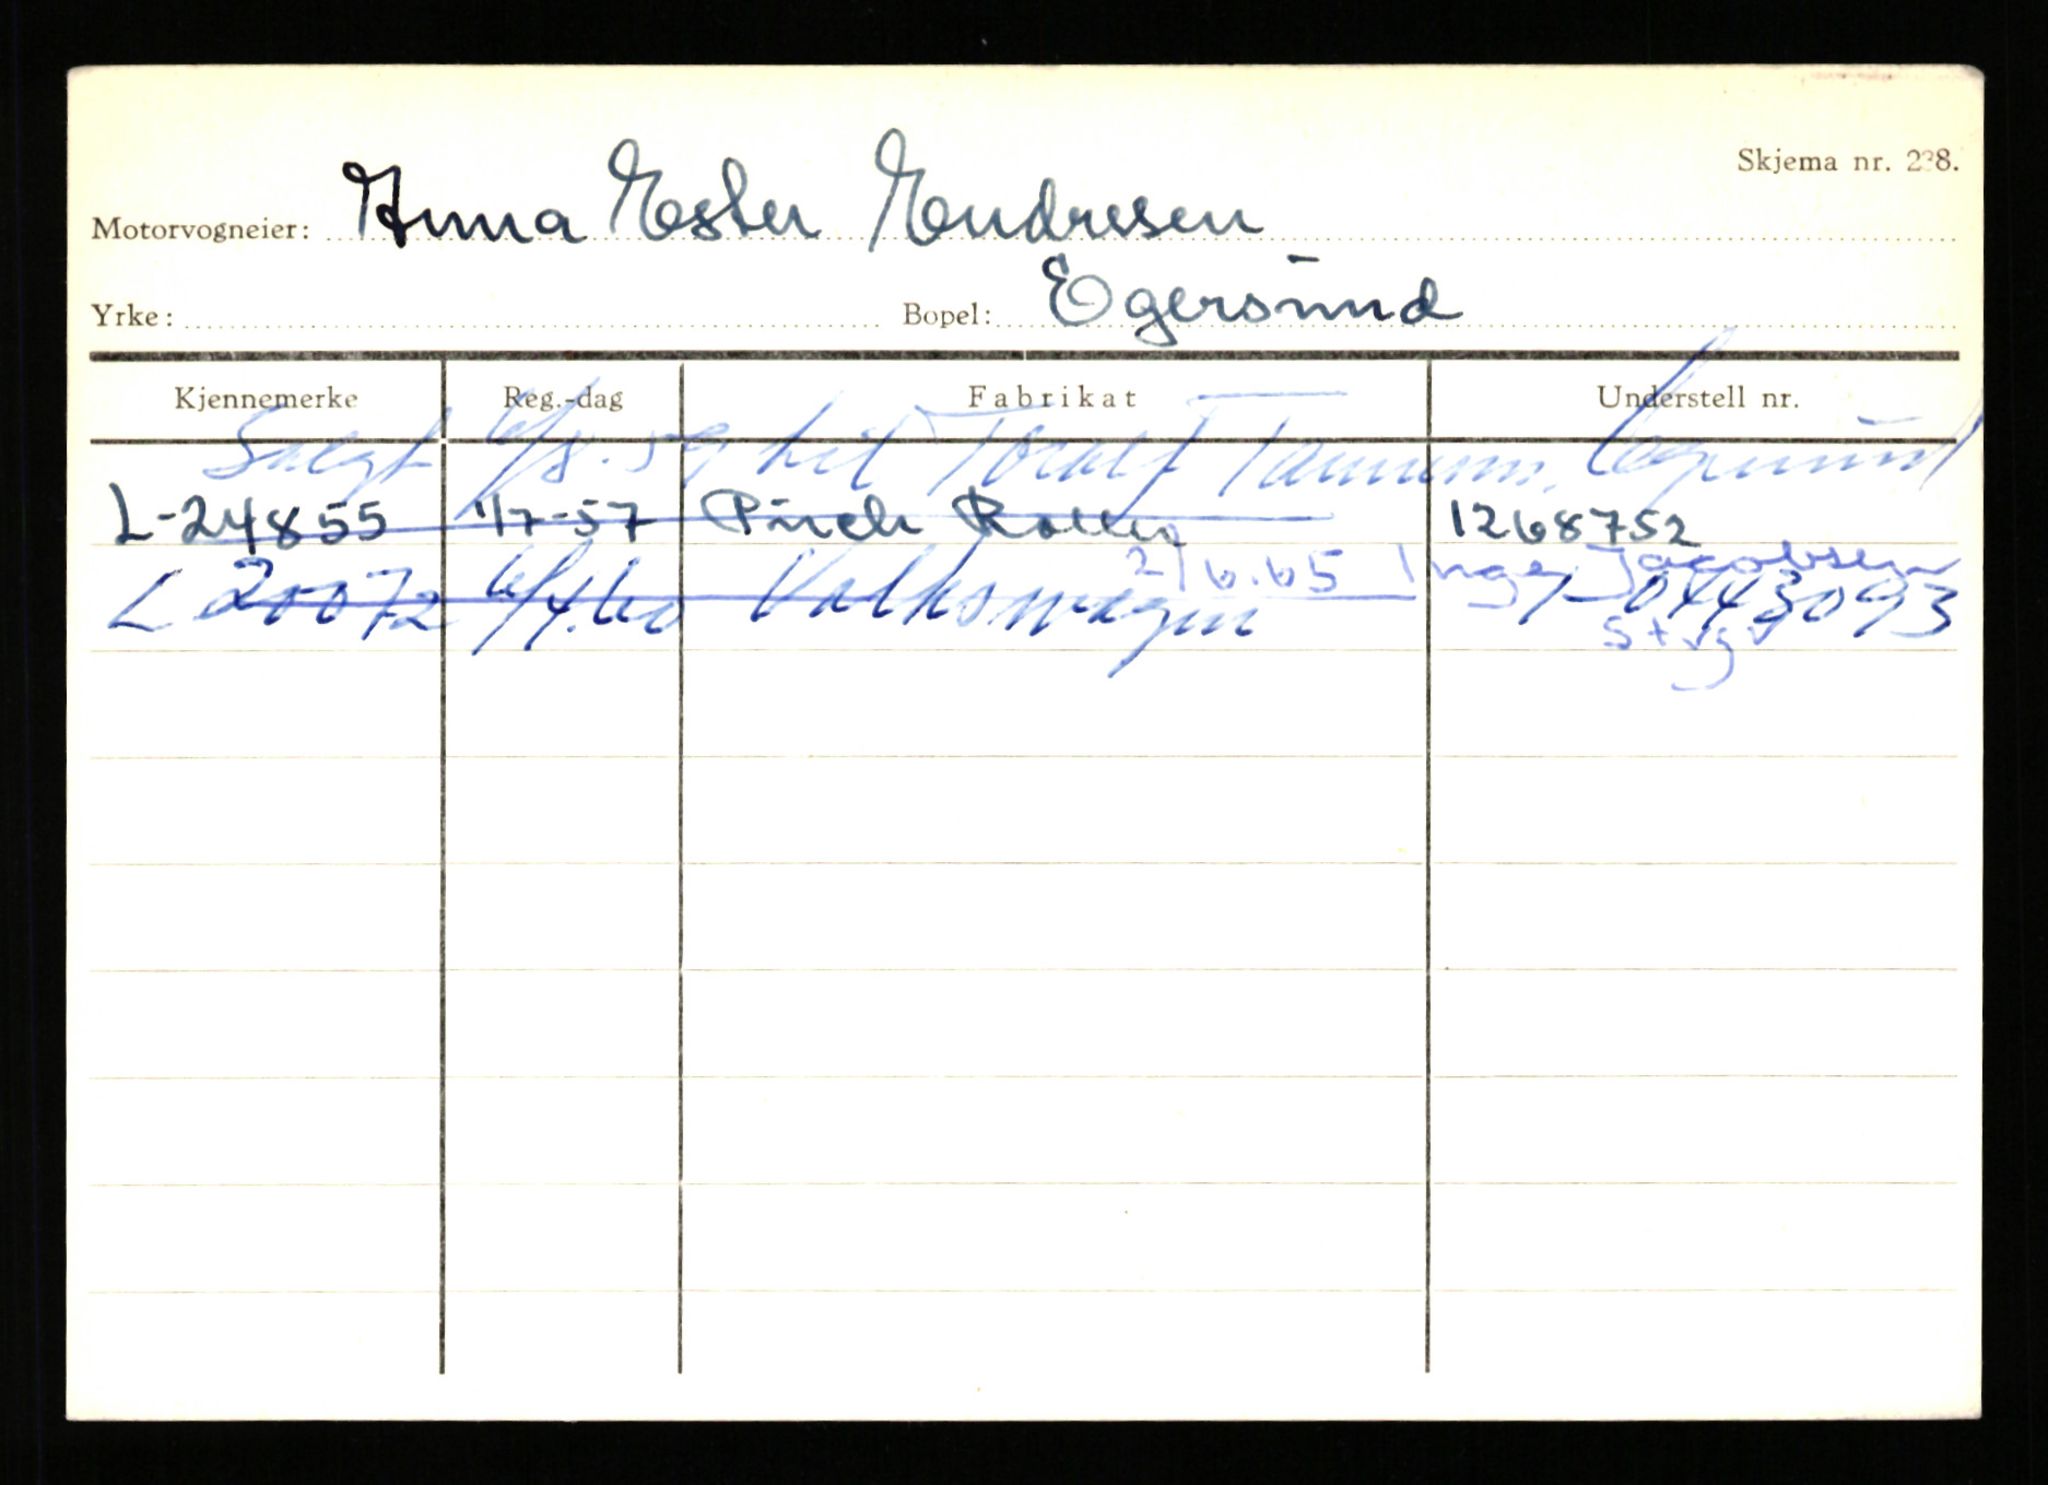 Skjema nr. 238.
Motorvogneier: Anna Ester Endresen
Yrke: Bopel: Egersund
Kjennemerke Reg.-dag Fabrikat Understell nr.
Solgt 6/8.59 til Toralf Egersund
L-24855 1/7-57 Puch Roller 1268752
2/6.65 Inge Jacobsen
L 20072 6/4.60 Volkswagen 1-0443093